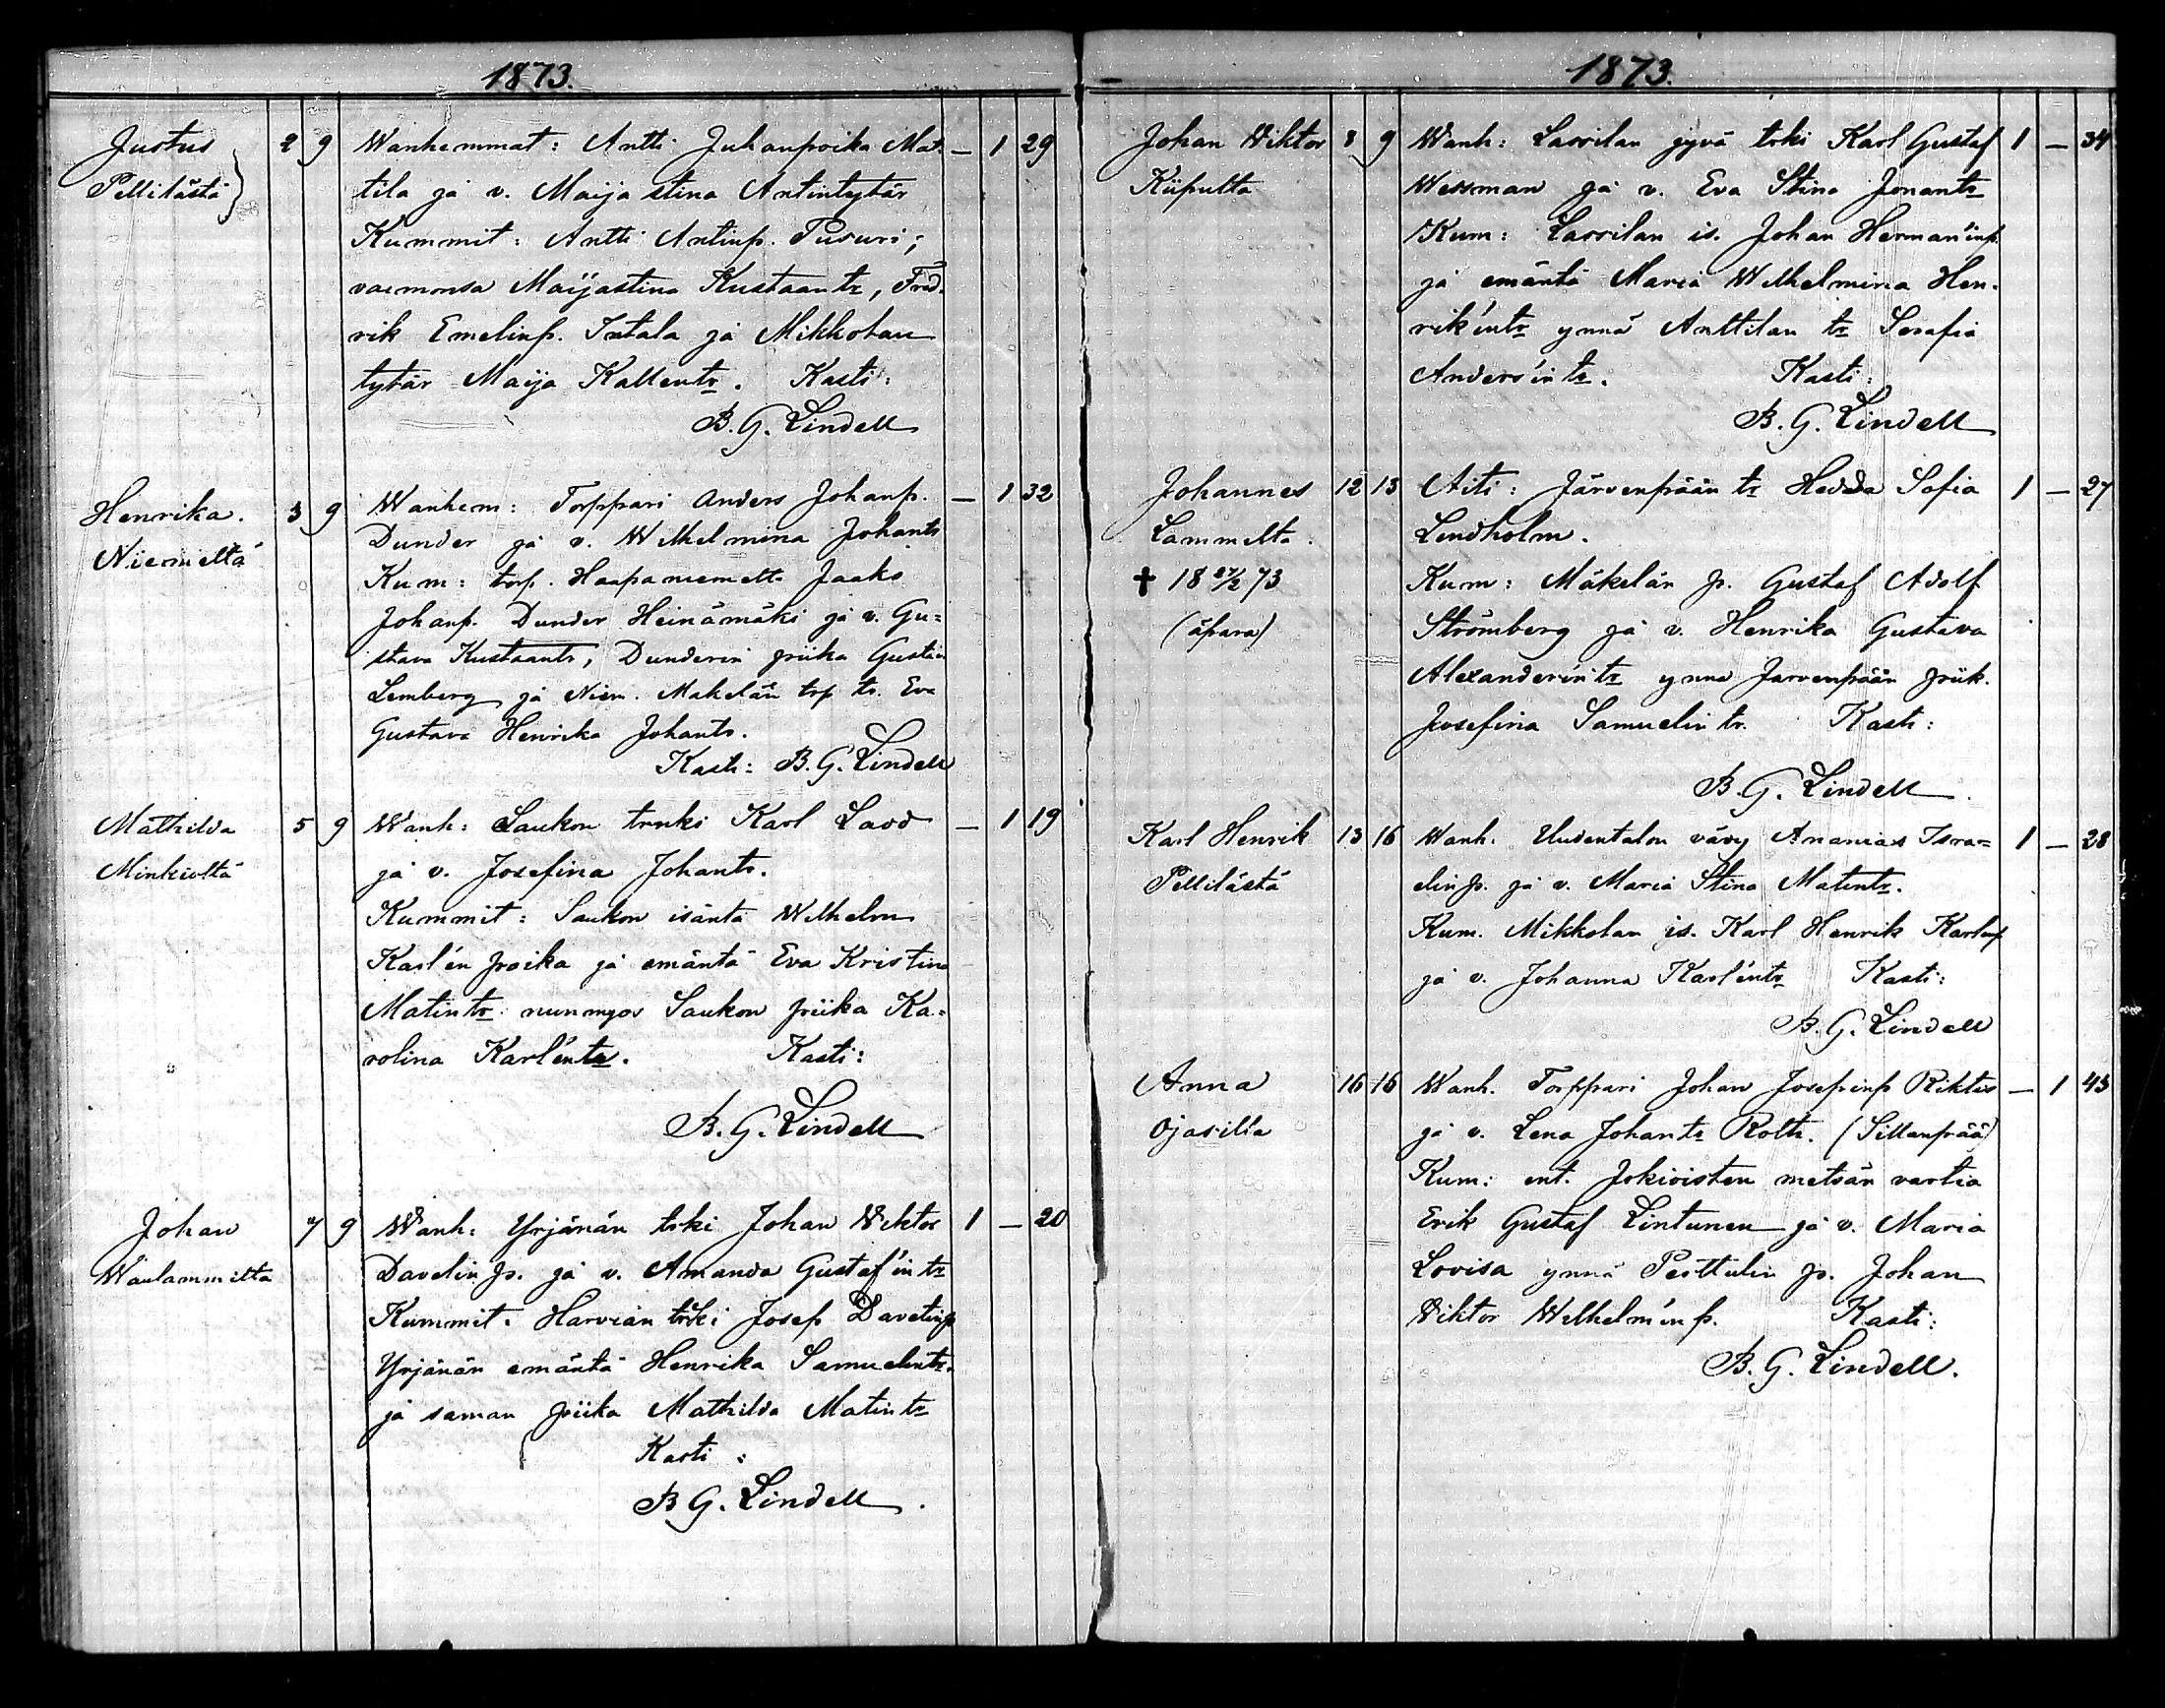 1873.
Justus 2 9 Wanhemmat: Antti Juhanpoika Mat- — 1 29
Pellilästä tila ja v. Maija Stina Antintytär
Kummit: Antti Antinp. Pusuri;
vaimonsa Maijastina Kustaantr, Fred-
rik Emelinp. Intala ja Mikkolan
tytär Maija Kallentr. Kasti:
B. G. Lindell
Henrika. 3 9 Wanhem: Torppari Anders Johanp. — 1 32
Niemeltä Dunder ja v. Wilhelmina Johantr
Kum: torp. Haapaniemeltä Jaako
Johanp. Dunder Heinämäki ja v. Gu=
stava Kustaantr, Dunderin piika Gustava
Lemberg ja Niem. Makelän trp tr. Eva
Gustava Henrika Johantr.
Kasti: B. G. Lindell
Mathilda 5 9 Wanh: Saukon trnki Karl Lavd — 1 19
Minkiöltä ja v. Josefina Johantr.
Kummit: Saukon isäntä Wilhelm
Karl'en poika ja emäntä Eva Kristina
Matintr. niinmyös Saukon piika Ka=
rolina Karl'entr. Kasti:
B. G. Lindell
Johan 7 9 Wanh: Yrjänän trki Johan Viktor 1 — 20
Waulammilta Davelin p. ja v. Amanda Gustaf'in tr
Kummit: Harvian trki Josef Davelinp
Yrjänän emäntä Henrika Samuelintr.
ja saman piika Mathilda Matintr
Kasti:
B G. Lindell.
1873.
Johan Viktor 8 9 Wanh: Lassilan jyvä trki Karl Gustaf 1 — 34
Kiipulta Wessman ja v. Eva Stina Jonantr
Kum: Lassilan is. Johan Herman'inp.
ja emäntä Maria Wilhelmina Hen-
rik'intr ynnä Anttilan tr Serafia
Anders'intr. Kasti:
B. G. Lindell
Johannes 12 13 Äiti: Järvenpään tr Hedda Sofia 1 — 27
Lammelta. Lindholm.
✝ 18 27/2 73 Kum: Mäkelän p. Gustaf Adolf
(äpara) Strömberg ja v. Henrika Gustava
Alexander'intr ynnä Jarvenpään piik.
Josefina Samuelin tr. Kasti:
B. G. Lindell.
Karl Henrik 13 16 Wanh. Uudentalon vävy Ananias Isra= 1 — 28
Pellilästä elin p. ja v. Maria Stina Matintr.
Kum. Mikkolan is. Karl Henrik Karlinp
ja v. Johanna Karl'entr Kasti:
B. G. Lindell
Anna 16 16 Wanh. Torppari Johan Josefinp Riktis — 1 43
Ojasilta ja v. Lena Johantr Roth. (Sillanpää)
Kum: ent. Jokioisten metsän vartia
Erik Gustaf Lintunen ja v. Maria
Lovisa ynnä Perttulin p. Johan
Viktor Wilhelm'in p. Kasti:
B. G. Lindell.